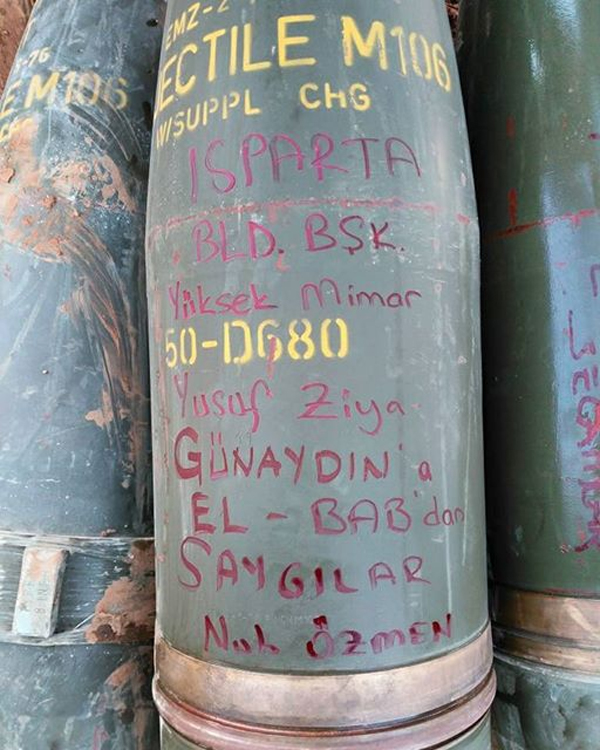 EMZ-2
ECTILE M106
W/SUPPL CHG
ISPARTA
BLD. BŞK.
Yüksek Mimar
50-D680
Yusuf Ziya
GÜNAYDIN'a
EL-BAB'dan
SAYGILAR
Nuh ÖZMEN
-76
E M106